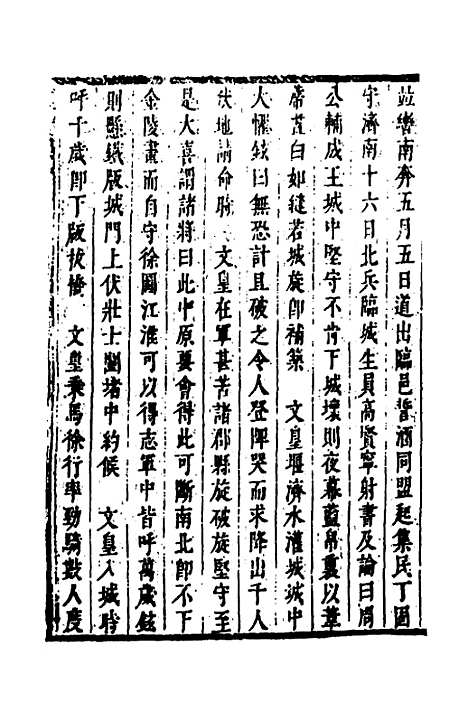 並轡南奔五月五日道出臨邑詣酒同盟起集民丁固
守濟南十六日北兵臨城生員高賢寧射書及論曰周
公輔成王城中堅守不肯下城壞則夜幕藍帛裹以葦
席苫白如縫若城旋即補築　文皇堰濟水灌城城中
大懼鉉曰無恐計且破之令人登陴哭而求降出千人
伏地請命時　文皇在軍甚苦諸郡縣旋破旋堅守至
是大喜謂諸將曰此中原要會得此可斷南北即不下
金陵畫而自守徐圖江淮可以得志軍中皆呼萬歲鉉
則懸鐵版城門上伏壯士闉堵中約候　文皇入城時
呼千歲即下版拔橋　文皇乘馬徐行率勁騎數人度